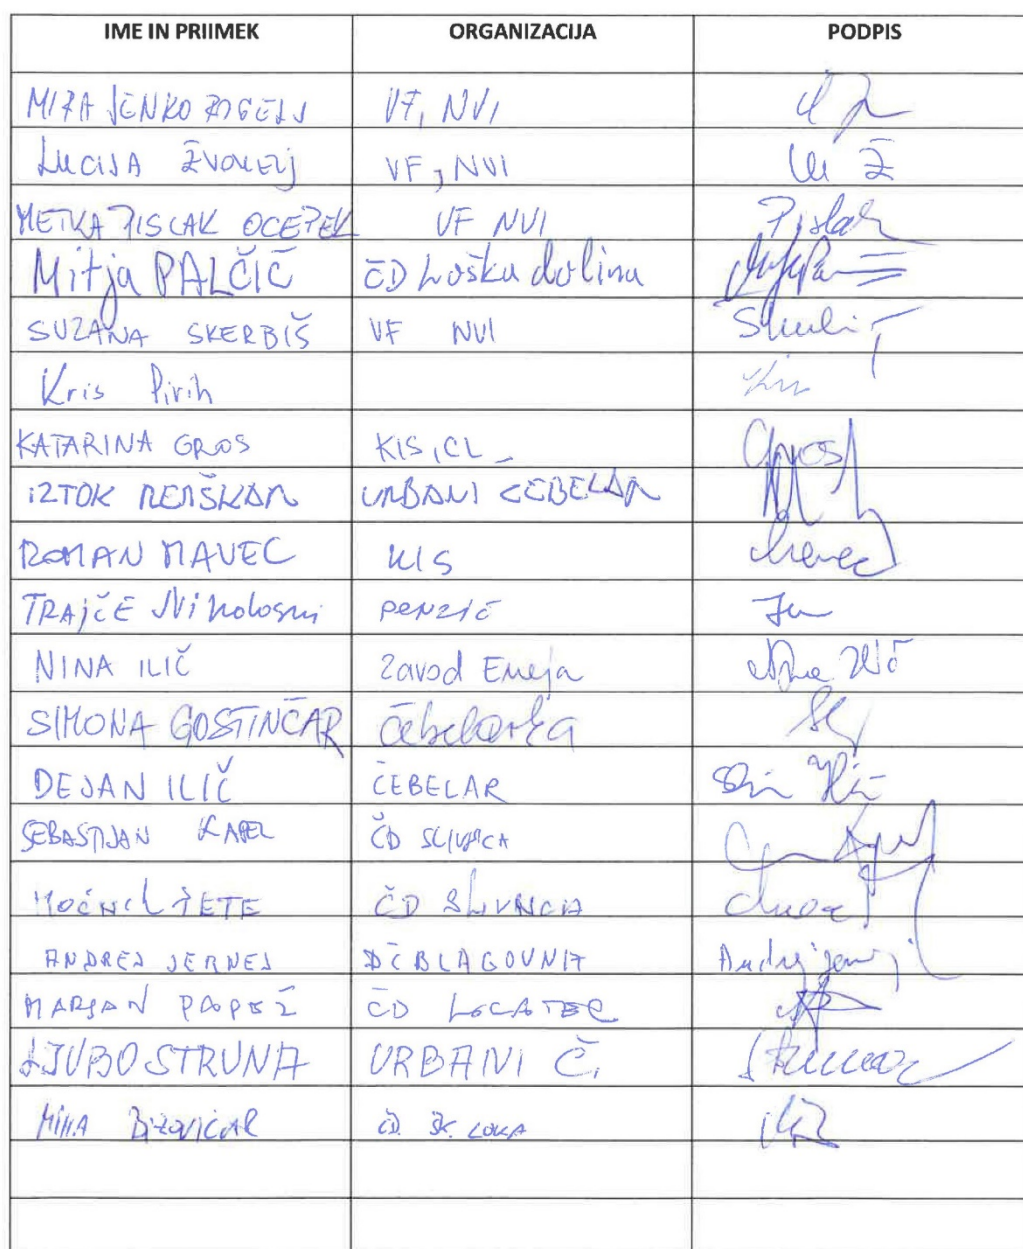 IME IN PRIIMEK ORGANIZACIJA PODPIS
MIRA JENKO ROGELJ VF, NVI
LUCIJA ŽVOKELJ VF, NVI
METKA PISLAK OCEPEK VF NVI Pislak
Mitja PALČIČ ČD Loška dolina
SUZANA SKERBIŠ VF NVI
Kris Pirih
KATARINA GROS KIS, ČL Gros
IZTOK URBANI ČEBELAR
ROMAN MAVEC KIS Mavec
TRAJČE Nikoloski
NINA ILIČ Zavod Eneja Nina Ilič
SIMONA GOSTINČAR Čebelarka
DEJAN ILIČ ČEBELAR
SEBASTIJAN KAPEL ČD SLIVNICA
MOČNIK ČD SLIVNICA
ANDREJ JERNEJ BLAGOVNA Andrej Jernej
MARJAN ČD LOGATEC
LJUBO STRUNA URBANI Č.
MIHA BIZOVIČAR ČD. ŠK. LOKA